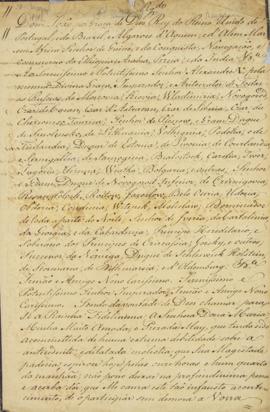 Dom João por Graça de Deos Rey do Reino Unido de
Portugal, e do Brazil e Algarves d'Aquem, e d'Alem Mar
em Africa Senhor de Guiné, e da Conquista, Navegação, e
Commercio da Ethiopia, Arabia, Persia, e da India
Serenissimo e Potentissimo Senhor Alexandre
Graça, Imperador, e Autocrator de Todas
as Russias, de Moscovia, Kiovia, Wladimiria, Novogorod,
Czar de Casan, Czar de Astracan, Czar de Siberia, Czar da
Chersoneso Taurica, Senhor de Plescow, e Gram Duque
de Smolensko, de Lithuania, Volhynia, Podolia, e de
Finlandia, Duque de Estonia, de Livonia, de Courlandia
e Semigalia, de Samogicia, Bialostock, Carelia, Tver,
Jugoria, Permia, Viatka, Bolgaria, e outras, Senhor
e Gram Duque de Novogorod inferior, de Czernigovia,
Rezan, Polock, Rostow, Jaroslaw, Belo
Obdoria, Condinia, Witepsk, Mstislaw, Dominador
de toda a parte do Norte, Senhor de Iveria, da Cartalinia
da Georgia, e da Cabardinia, Principe Hereditario, e
Soberano dos Principes de Circassia,
Successor da Noruega, Duque de Schleswick Holstein,
de Stormaria, de Dithmarsia, e de Oldenburg
Irmão e Amigo Meu Carissimo. Serenissimo e
Potentissimo Senhor Imperador Irmão e Amigo Meu
Carissimo. Tendo Deos chamar para
Si a Rainha Fidelissima A Senhora Dona Maria
Minha Muito Amada, e Prezada May, que tendo sido
accommettida de huma extrema debilidade sobre a
antecedente, e dilatada molestia, que Sua Magestade
padecia, expirou hoje pelas onze horas e hum quarto
da manhãa; não posso deixar na profundissima pena
e acerba dôr, que Me causa este tão infausto aconte-
cimento, de o participar sem demora a Vossa